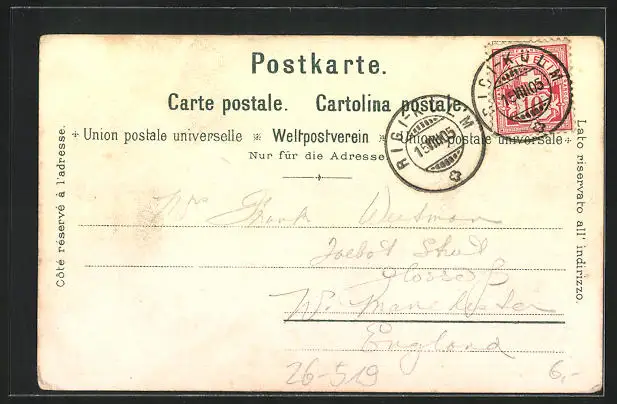 Postkarte.
Carte postale. Cartolina postale.
Union postale universelle ※ Weltpostverein ※ Unione postale universale
Nur für die Adresse
Côté réservé à l'adresse.
Lato riservato all' indirizzo.
RIGI-KULM
15 VIII 05
RIGI-KULM
15 VIII 05
10
Mrs Frank
Glossop
Nr. Manchester
England
26-519
6,-